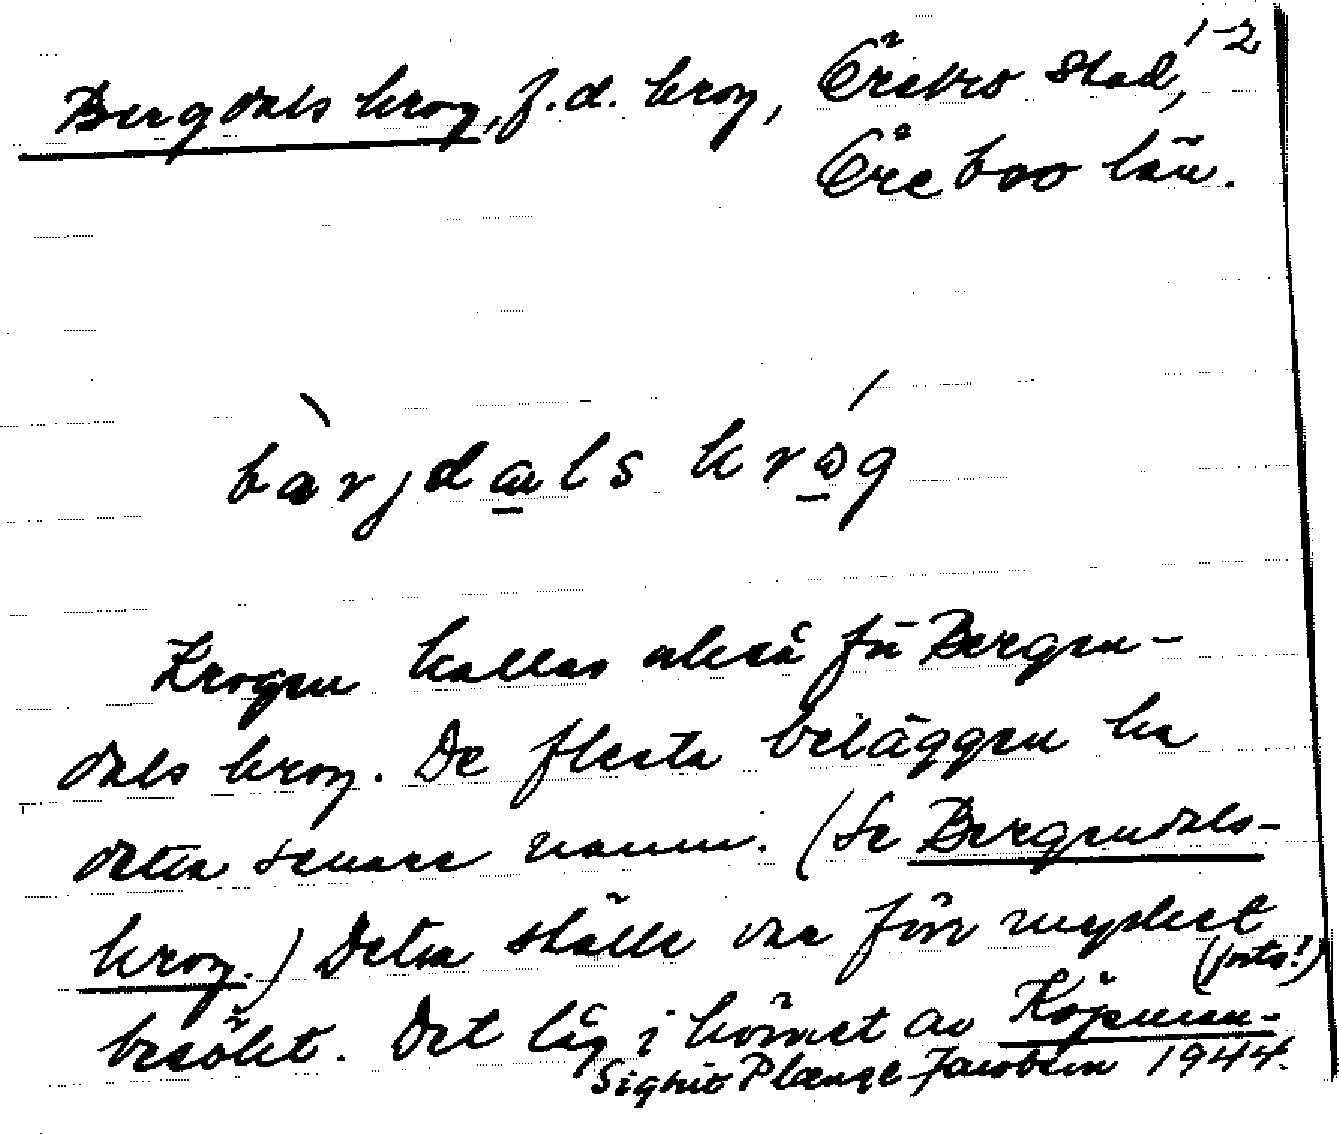 1-2
Bergdals krog, f.d. krog, Örebro stad,
Örebro län.
bàrjdals króg
Krogen kallas också för Bergen-
dals krog. De flesta beläggen ha
detta senare namn. (Se Bergendals-
krog.) Detta ställe var förr mycket
besökt. Det låg i hörnet av Köpman-
(forts!)
Sigrid Plænge Jacobson 1944.